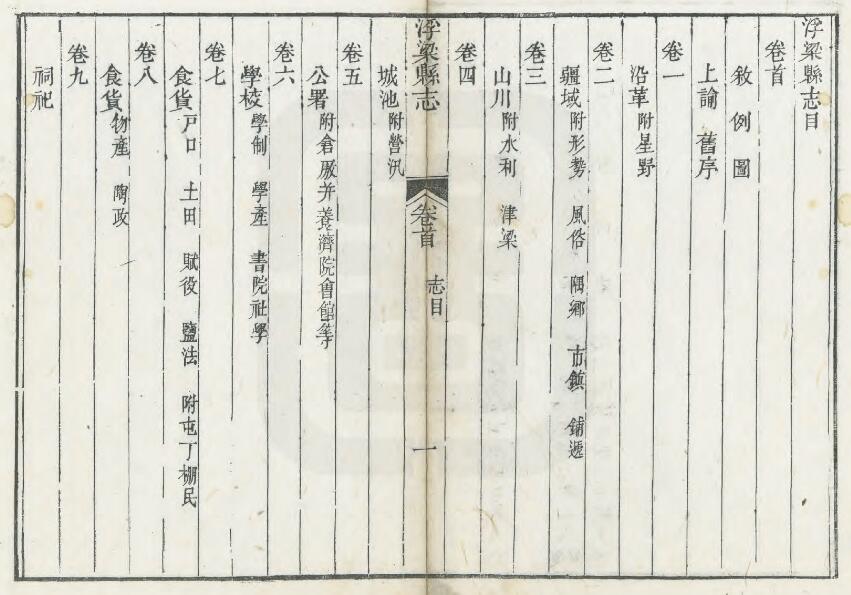 浮梁縣志目
卷首
敘 例 圖
上諭 舊序
卷一
沿革 附星野
卷二
疆域 附形勢 風俗 隅鄉 市鎮 鋪遞
卷三
山川 附水利 津梁
卷四
浮梁縣志 卷首 志目 一
城池 附營汛
卷五
公署 附倉厫并養濟院會館等
卷六
學校 學制 學產 書院社學
卷七
食貨 戸口 土田 賦役 鹽法 附屯丁棚民
卷八
食貨 物產 陶政
卷九
祠祀